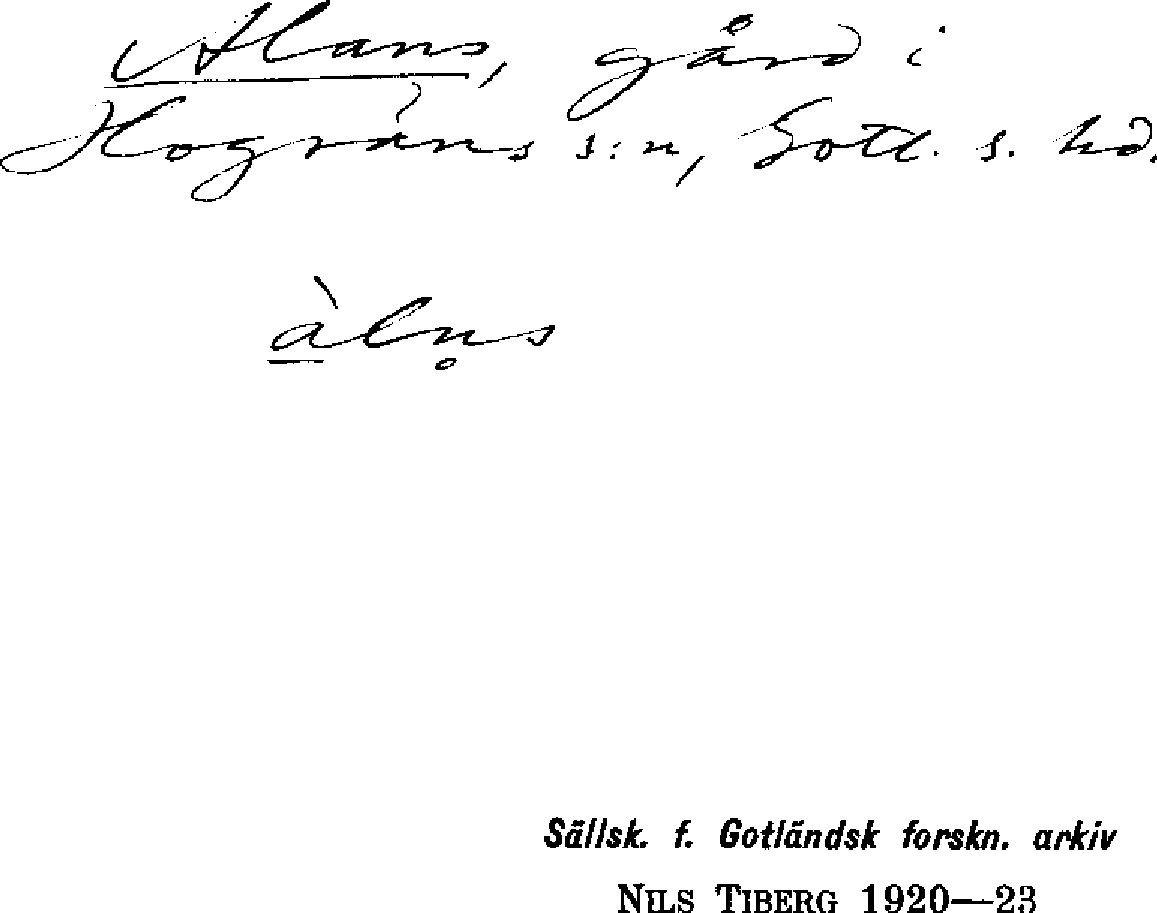 Alans, gård i
Hogräns s:n, Gotl. s. hd.
àln̥s
Sällsk. f. Gotländsk forskn. arkiv
NILS TIBERG 1920—23